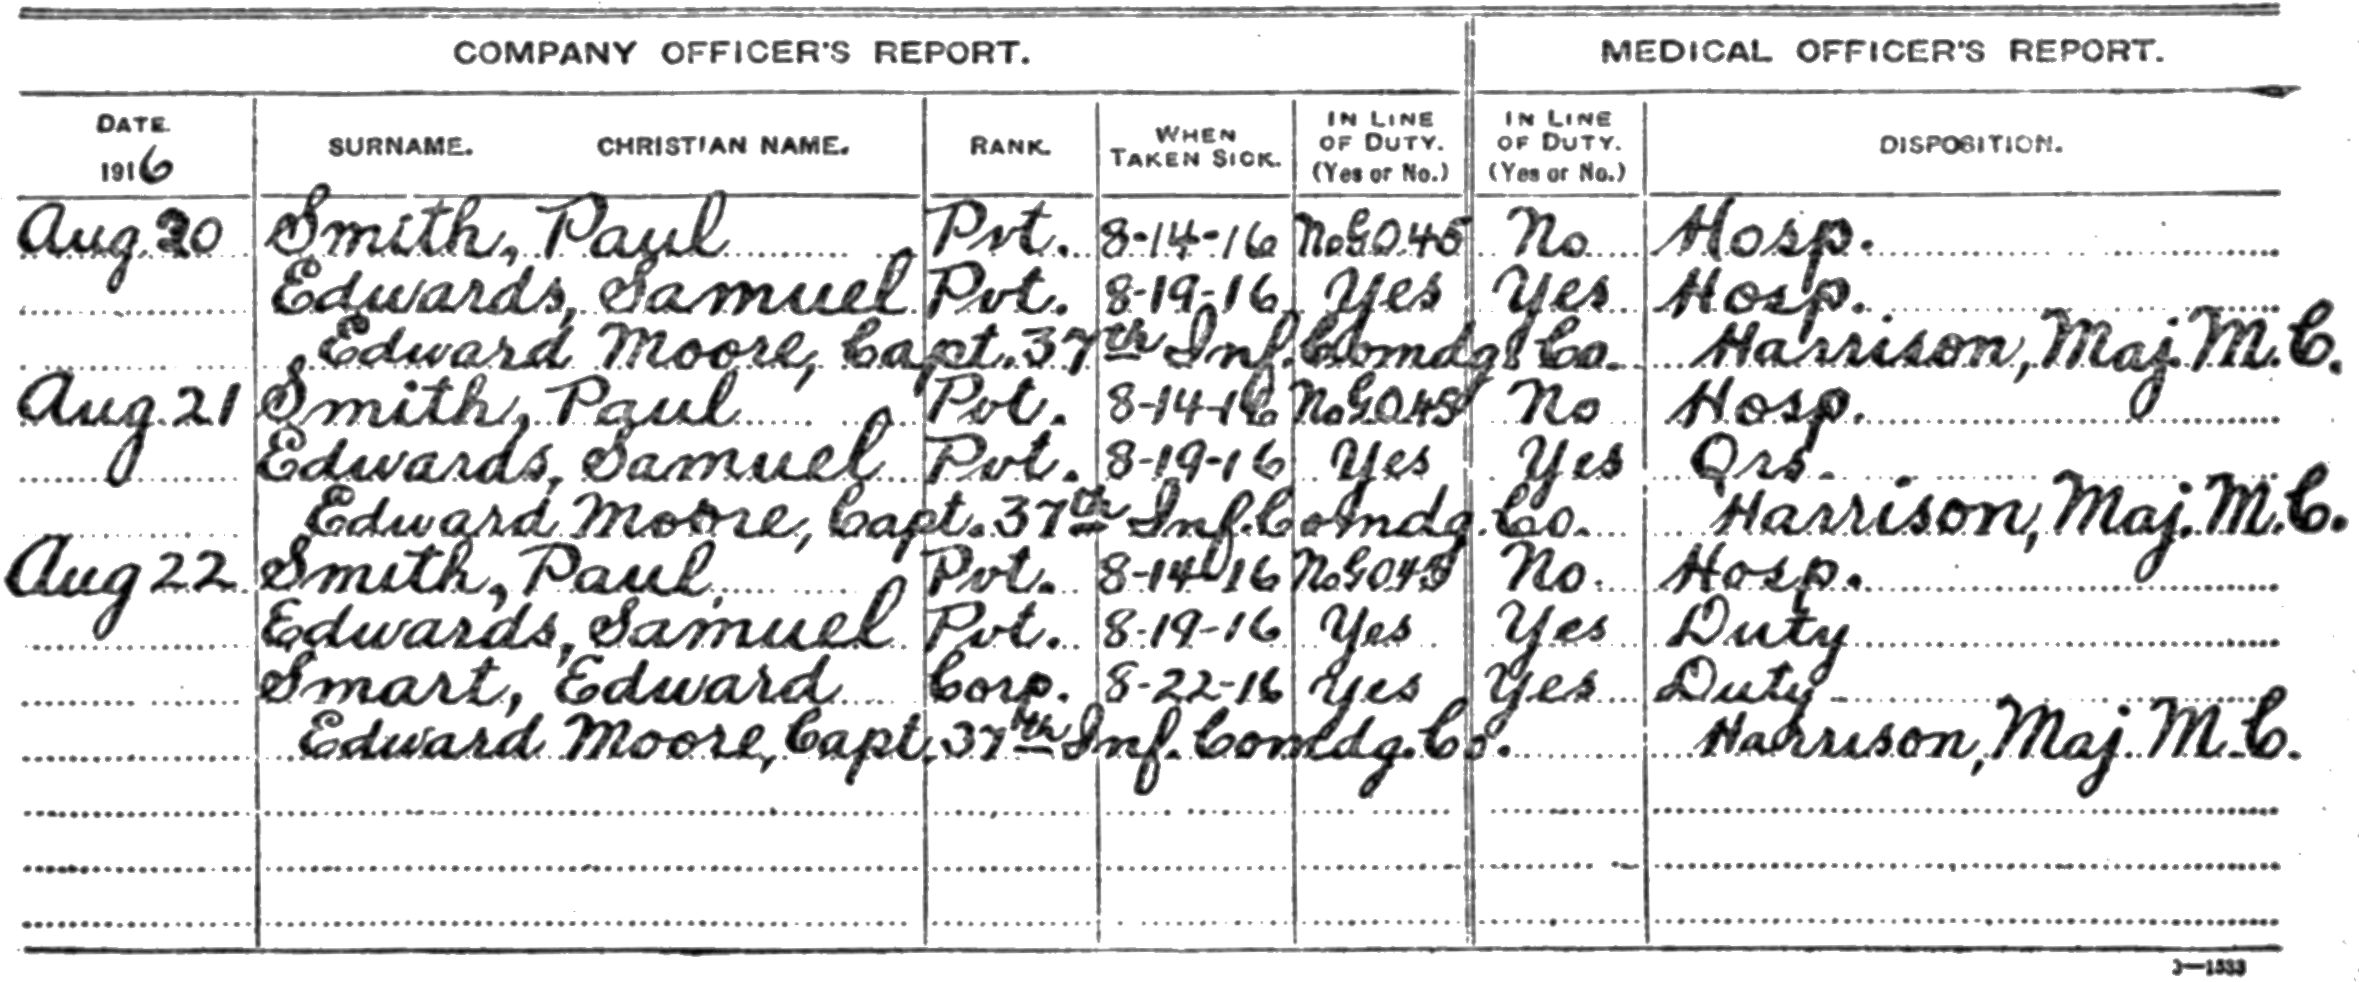 COMPANY OFFICER'S REPORT. MEDICAL OFFICER'S REPORT.
DATE. 1916 SURNAME. CHRISTIAN NAME. RANK. WHEN TAKEN SICK. IN LINE OF DUTY. (Yes or No.) IN LINE OF DUTY. (Yes or No.) DISPOSITION.
Aug. 20 Smith, Paul Pvt. 8-14-16 No G.O.45 No Hosp.
Edwards, Samuel Pvt. 8-19-16 Yes Yes Hosp.
Edward Moore, Capt. 37th Inf. Comdg. Co. Harrison, Maj. M.C.
Aug. 21 Smith, Paul Pvt. 8-14-16 No G.O.45 No Hosp.
Edwards, Samuel Pvt. 8-19-16 Yes Yes Qrs.
Edward Moore, Capt. 37th Inf. Comdg. Co. Harrison, Maj. M.C.
Aug 22 Smith, Paul Pvt. 8-14-16 No G.O.45 No. Hosp.
Edwards, Samuel Pvt. 8-19-16 Yes Yes Duty
Smart, Edward Corp. 8-22-16 Yes Yes Duty
Edward Moore, Capt. 37th Inf. Comdg. Co. Harrison, Maj. M.C.
3—1533